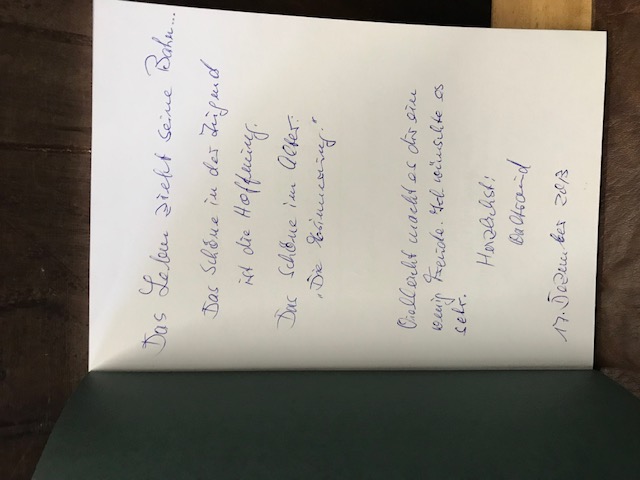 Das Leben zieht seine Bahn...
Das Schöne in der Jugend
ist die Hoffnung.
Das Schöne im Alter:
„Die Erinnerung."
Vielleicht macht es dir ein
wenig Freude. Ich wünschte es
sehr.
Herzlichst!
Waltraud
17. Dezember 2013